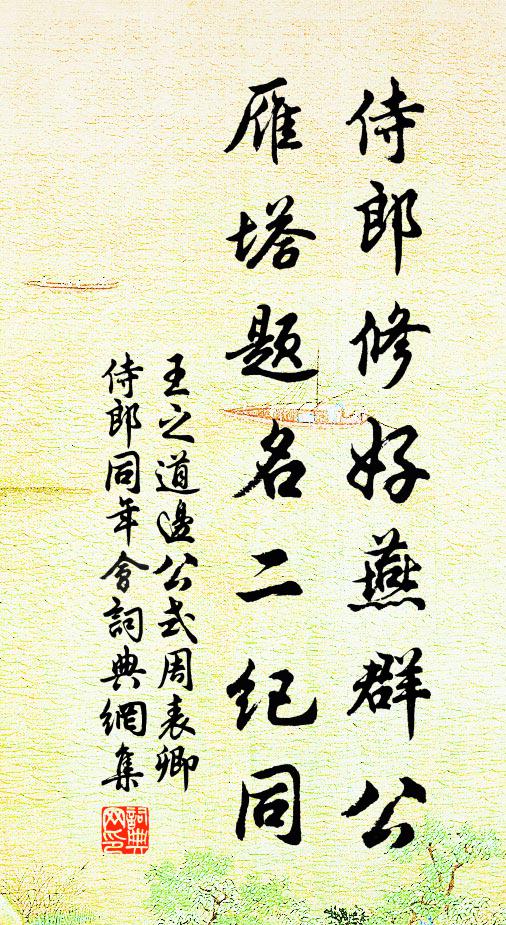 侍郎修好燕群公
雁塔题名二纪同
王之道邊公式周表卿
侍郎同年會詞典網集
詞典网印